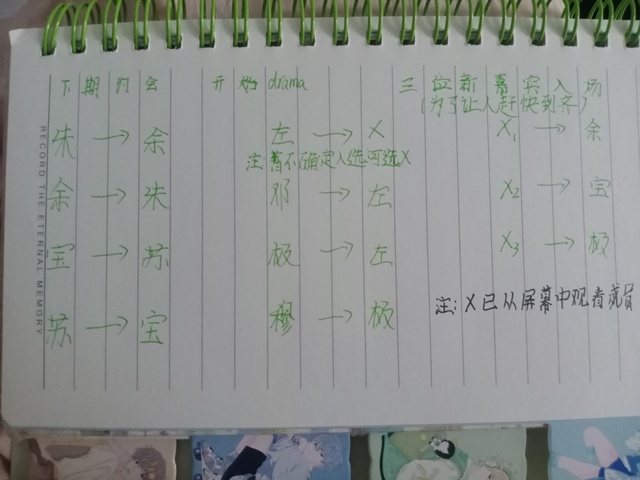 下期约会 开始drama 三位新嘉宾入场
(为了让人赶快到齐)
朱→余 左→X X₁→余
注:暂不确定人选可选X
余→朱 邓→左 X₂→宝
宝→苏 极→左 X₃→极
注:X已从屏幕中观看成员
苏→宝 穆→极
RECORD THE ETERNAL MEMORY